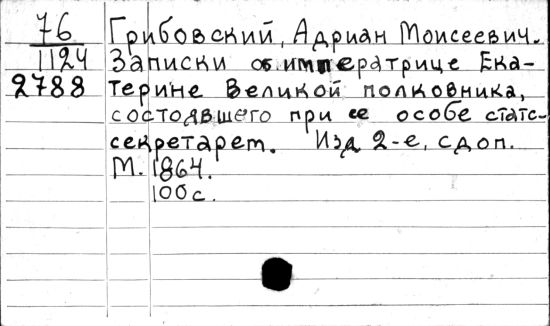 76 Грибовский, Адриан Моисеевич.
1124 Записки об императрице Ека-
2788 терине Великой полковника,
состоявшего при ее особе статс-
секретарем. Изд 2-е, с доп.
М. 1864.
100с.